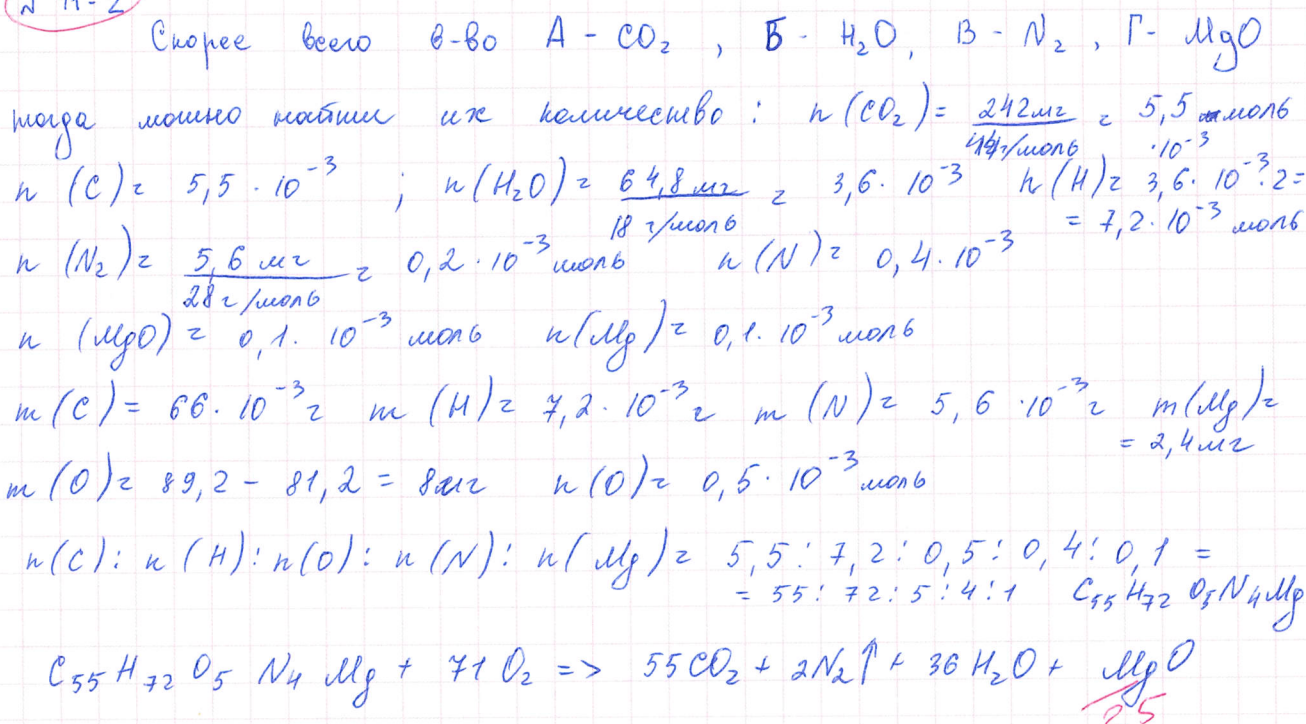 N 11-2
Скорее всего в-во А - CO₂, Б - H₂O, В - N₂, Г - MgO
тогда можно найти их количество: n(CO₂) = 242мг / 44г/моль = 5,5 моль ·10⁻³
n(C) = 5,5·10⁻³ ; n(H₂O) = 64,8 мг / 18 г/моль = 3,6·10⁻³ n(H) = 3,6·10⁻³·2 =
= 7,2·10⁻³ моль
n(N₂) = 5,6 мг / 28г/моль = 0,2·10⁻³ моль n(N) = 0,4·10⁻³
n(MgO) = 0,1·10⁻³ моль n(Mg) = 0,1·10⁻³ моль
m(C) = 66·10⁻³ г m(H) = 7,2·10⁻³ г m(N) = 5,6·10⁻³ г m(Mg) =
= 2,4мг
m(O) = 89,2 - 81,2 = 8мг n(O) = 0,5·10⁻³ моль
n(C) : n(H) : n(O) : n(N) : n(Mg) = 5,5 : 7,2 : 0,5 : 0,4 : 0,1 =
= 55 : 72 : 5 : 4 : 1 C₅₅H₇₂O₅N₄Mg
C₅₅H₇₂O₅N₄Mg + 71O₂ => 55CO₂ + 2N₂↑ + 36H₂O + MgO